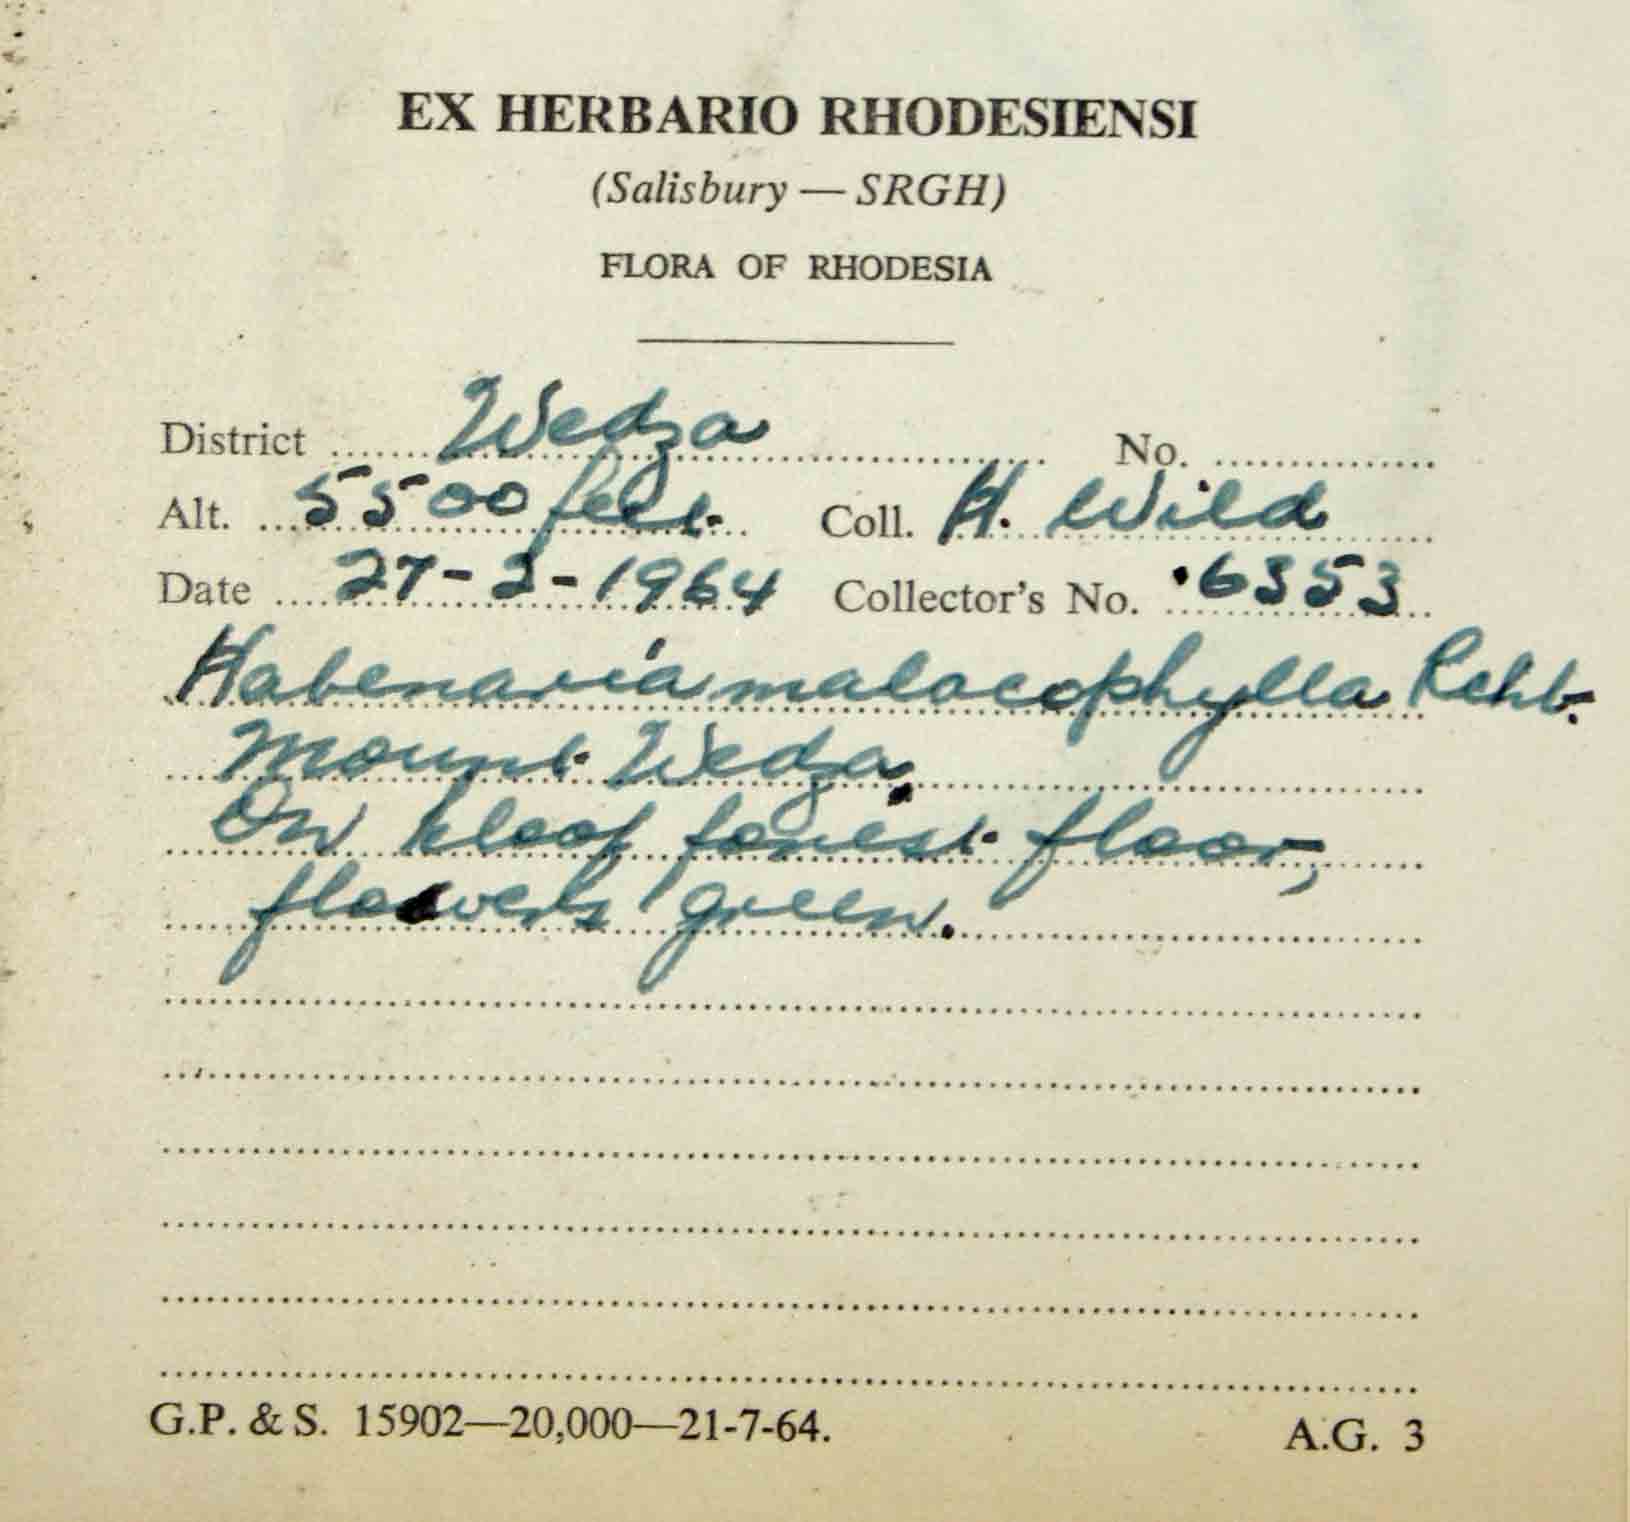 EX HERBARIO RHODESIENSI
(Salisbury — SRGH)
FLORA OF RHODESIA
District Wedza No.
Alt. 5500 feet. Coll. H. Wild
Date 27-2-1964 Collector's No. 6353
Habenaria malacophylla Rchb.
Mount Wedza.
On kloof forest floor,
flowers green.
G.P. & S. 15902—20,000—21-7-64. A.G. 3